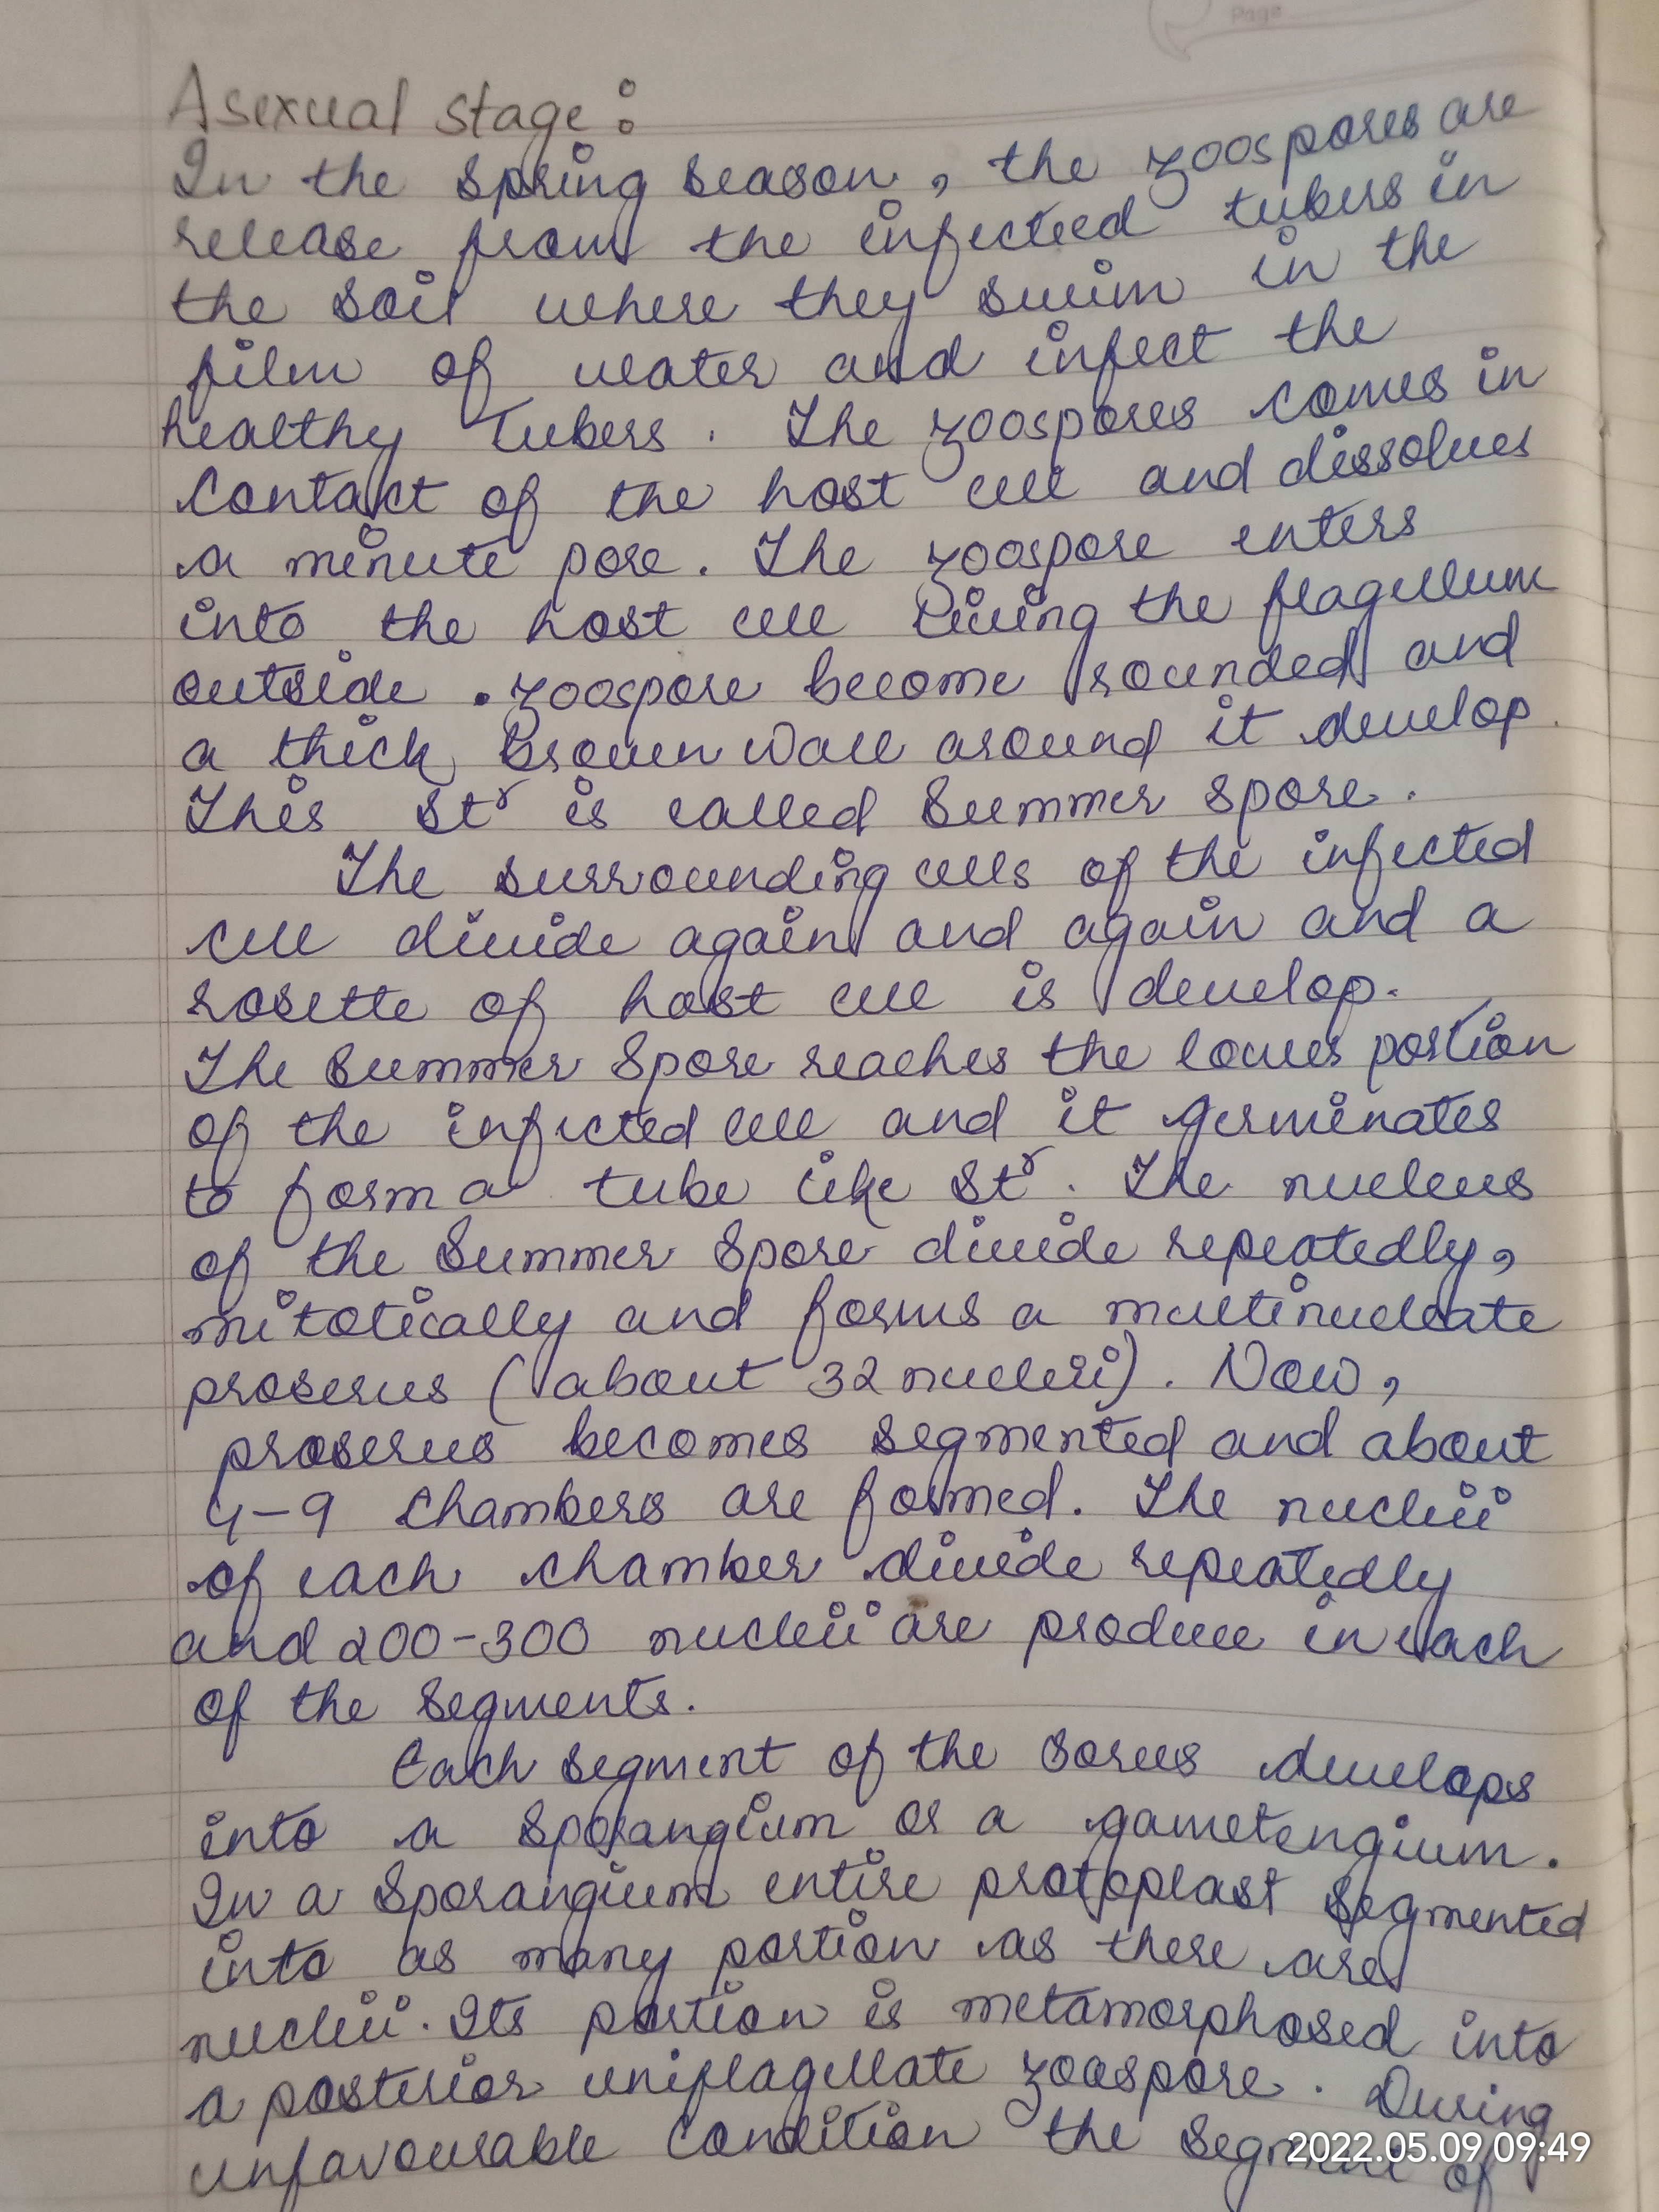 Page
Asexual stage :
In the spring season, the zoospores are
release from the infected tubers in
the soil where they swim in the
film of water and infect the
healthy Tubers. The zoospores comes in
contact of the host cell and dissolves
a minute pore. The zoospore enters
into the host cell living the flagellum
outside. zoospore become rounded and
a thick Brown wall around it develop.
This Stʳ is called Summer spore.
The surrounding cells of the infected
cell divide again and again and a
rosette of host cell is develop.
The Summer Spore reaches the lower portion
of the infected cell and it germinates
to form a tube like Stʳ. The nucleus
of the Summer Spore divide repeatedly,
mitotically and forms a multinucleate
prosorus (about 32 nucleii). Now,
prosorus becomes segmented and about
4-9 chambers are formed. The nucleii
of each chamber divide repeatedly
and 200-300 nucleii are produce in each
of the segments.
Each segment of the sorus develops
into a sporangium or a gametengium.
In a sporangium entire protoplast segmented
into as many portion as there are
nucleii. Its portion is metamorphosed into
a posterior uniflagellate zoospore. During
unfavourable condition the segment of
2022.05.09 09:49